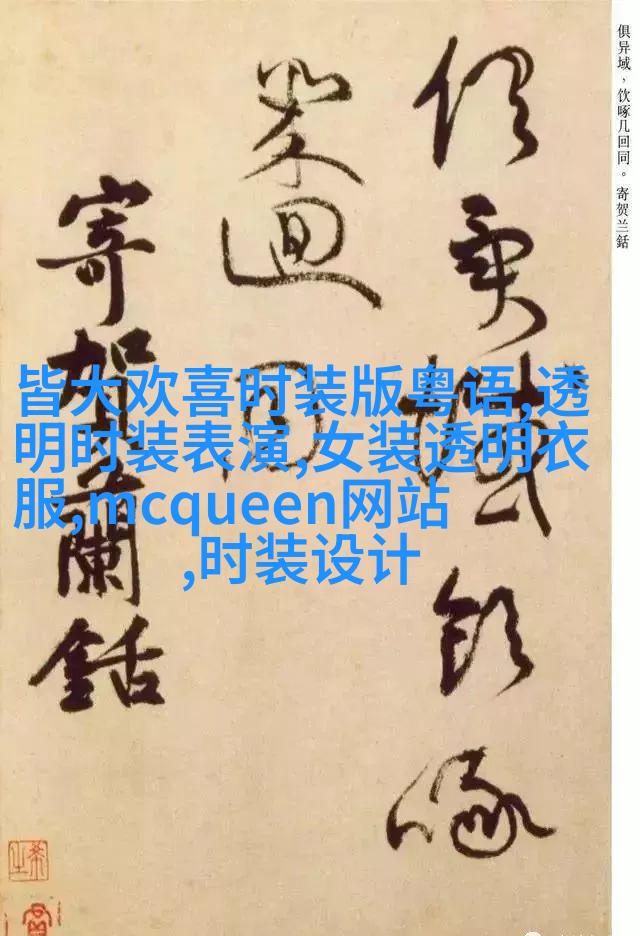 俱异域，饮啄几回同。寄贺兰銛
俱異域飲啄
幾迴同
寄賀蘭銛
皆大欢喜时装版粤语,透
明时装表演,女装透明衣
服,mcqueen网站
,时装设计